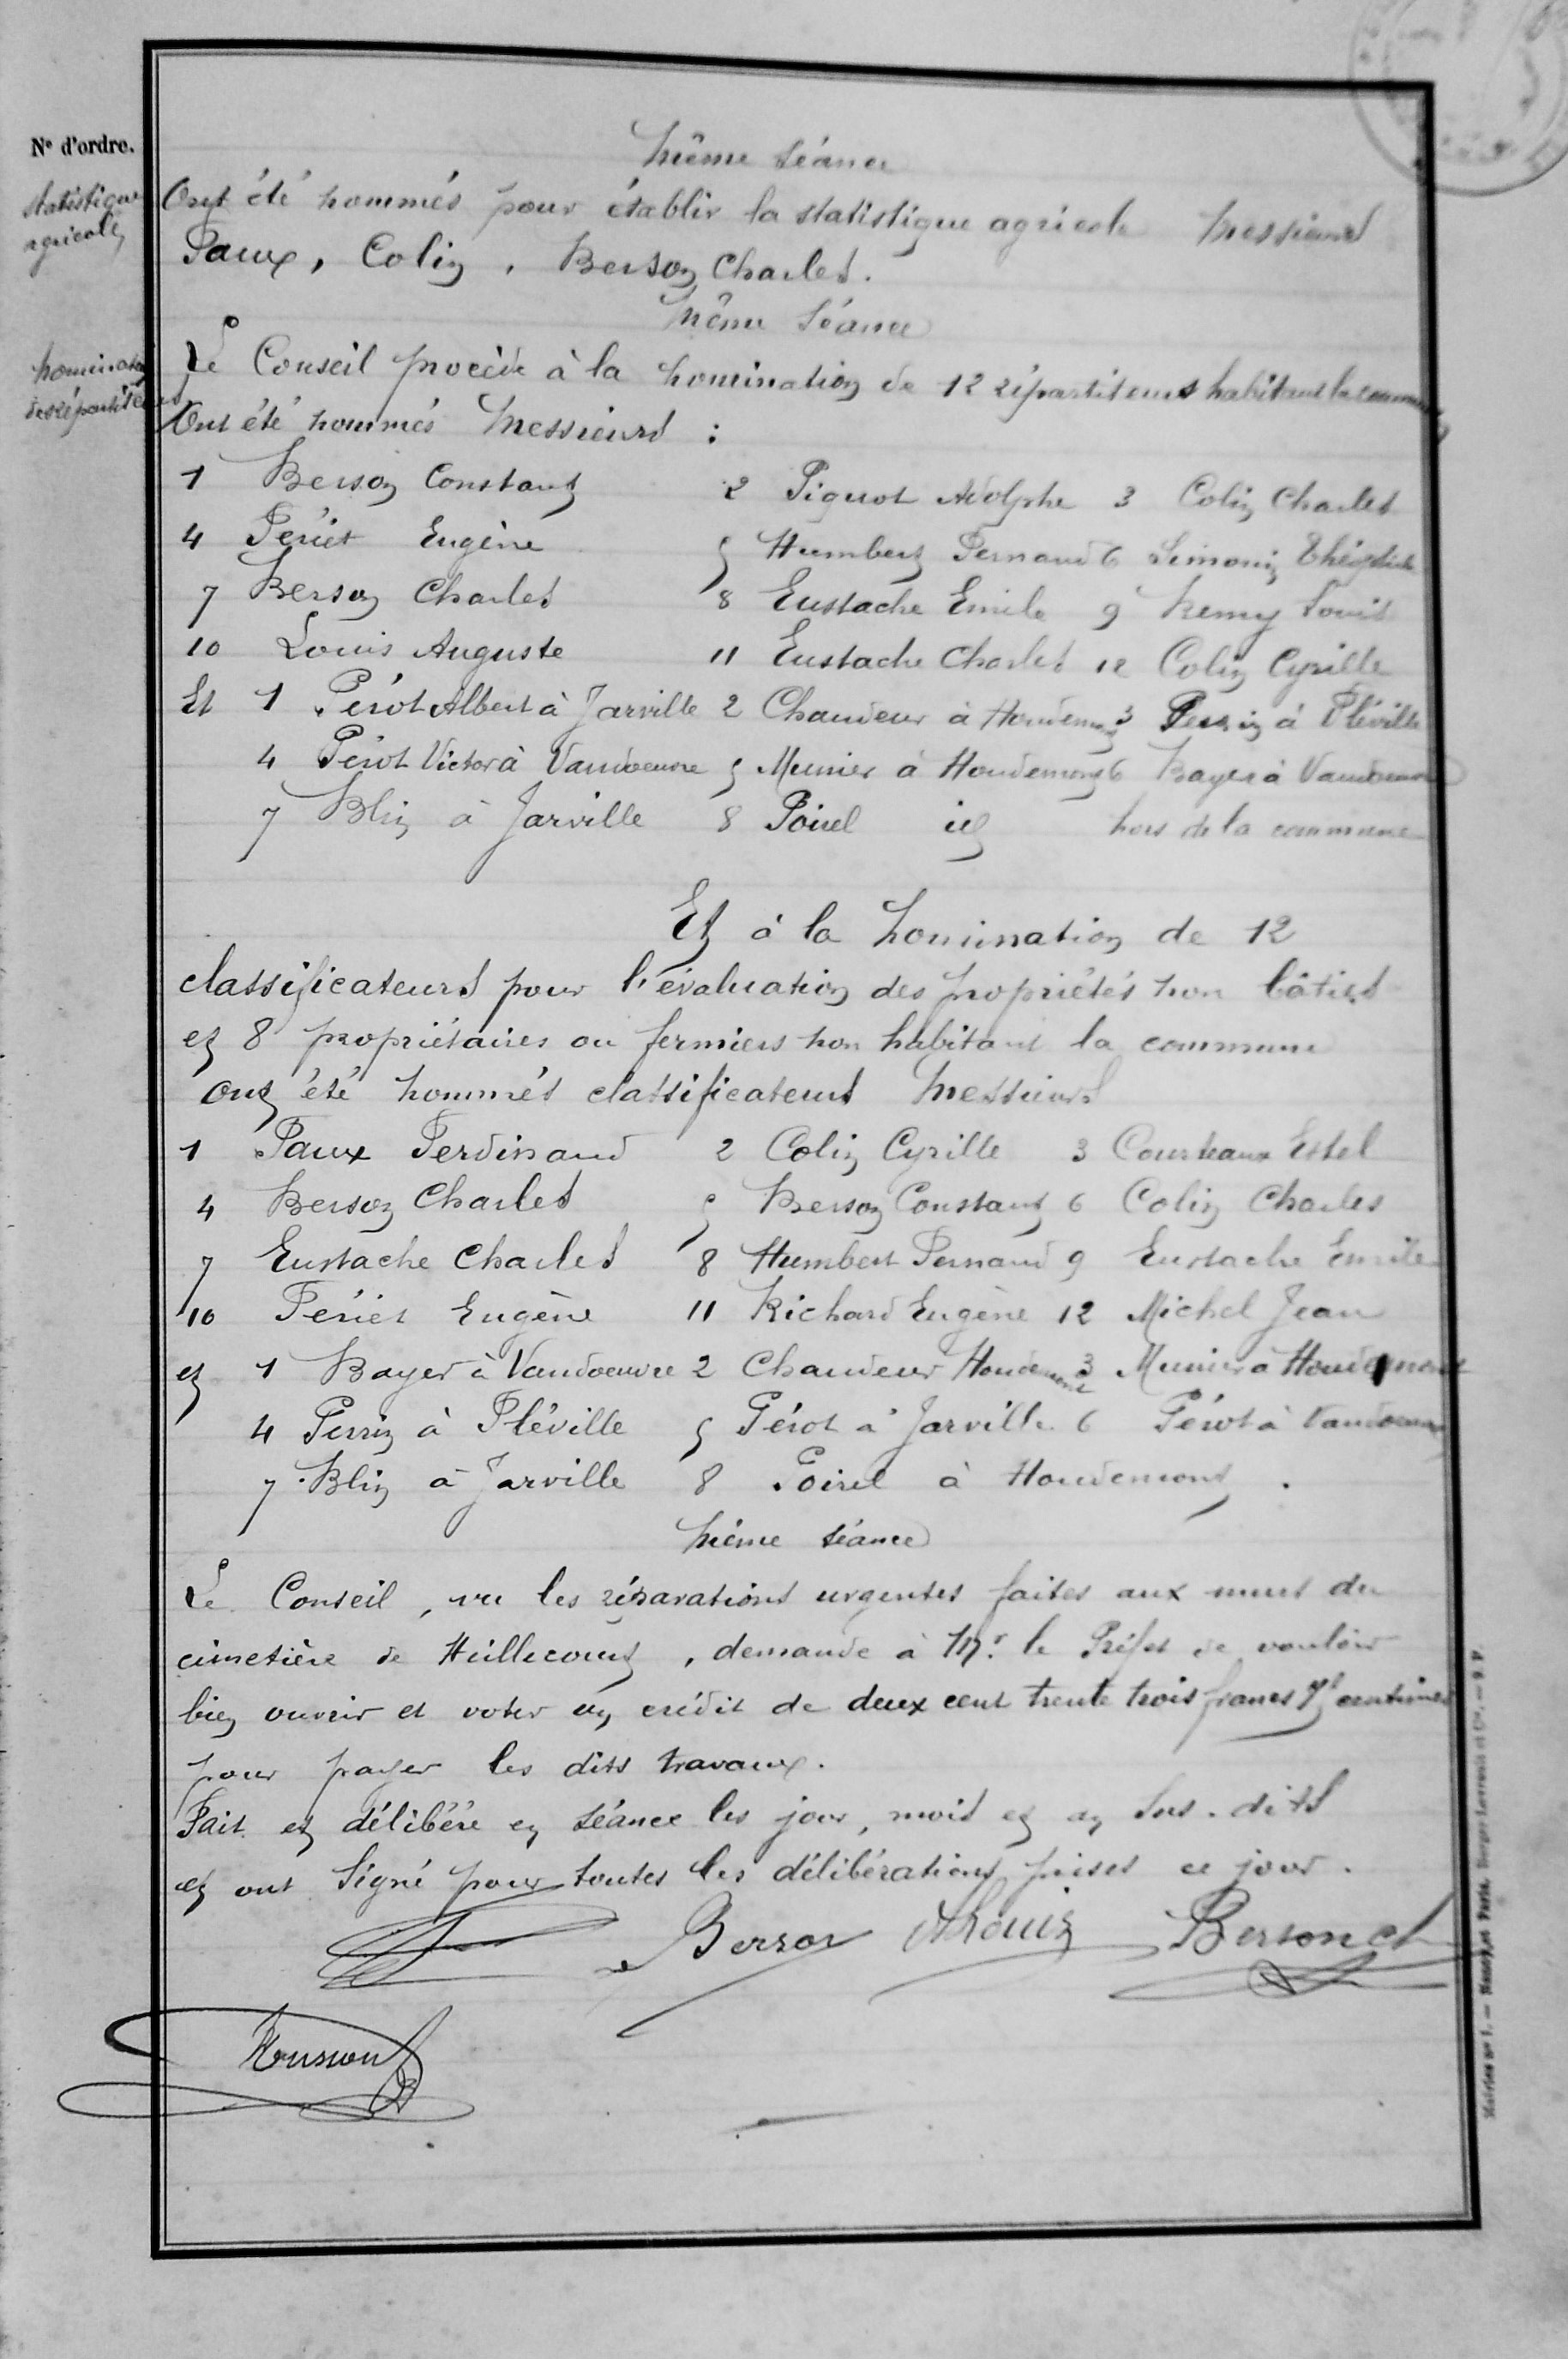 N° d'ordre.
Même séance
statistique
agricole
Ont été nommés pour établir la statistique agricole Messieurs
Paux, Colin, Berson Charles.
Même séance
nomination
des répartiteurs
Le Conseil procède à la nomination de 12 répartiteurs habitant la commune
Ont été nommés Messieurs :
1 Berson Constant 2 Piquot Adolphe 3 Colin Charles
4 Fériet Eugène 5 Humbert Fernand 6 Simonin
7 Berson Charles 8 Eustache Emile 9 Remy Louis
10 Louis Auguste 11 Eustache Charles 12 Colin Cyrille
Et 1 Pérot Albert à Jarville 2 Chaudeur à Houdemont 3 Perrin à Fléville
4 Pérot Victor à Vandoeuvre 5 Munier à Houdemont 6 Bayer à Vandoeuvre
7 Blin à Jarville 8 Poirel id hors de la commune
Et à la nomination de 12
classificateurs pour l'évaluation des propriétés non bâties
et 8 propriétaires ou fermiers non habitant la commune
ont été nommés classificateurs Messieurs
1 Paux Ferdinand 2 Colin Cyrille 3 Courteaux Estel
4 Berson Charles 5 Berson Constant 6 Colin Charles
7 Eustache Charles 8 Humbert Fernand 9 Eustache Emile
10 Fériet Eugène 11 Richard Eugène 12 Michel Jean
et 1 Bayer à Vandoeuvre 2 Chaudeur Houdemont 3 Munier à Houdemont
4 Perrin à Fléville 5 Pérot à Jarville 6 Pérot à Vandoeuvre
7 Blin à Jarville 8 Poirel à Houdemont.
Même séance
Le Conseil, vu les réparations urgentes faites aux murs du
cimetière de Heillecourt, demande à Mr. le Préfet de vouloir
bien ouvrir et voter un crédit de deux cent trente trois francs centimes
pour payer les dits travaux.
Fait et délibéré en séance les jour, mois et an sus-dits
et ont signé pour toutes les délibérations prises ce jour.
Berson ALouis Berson ch